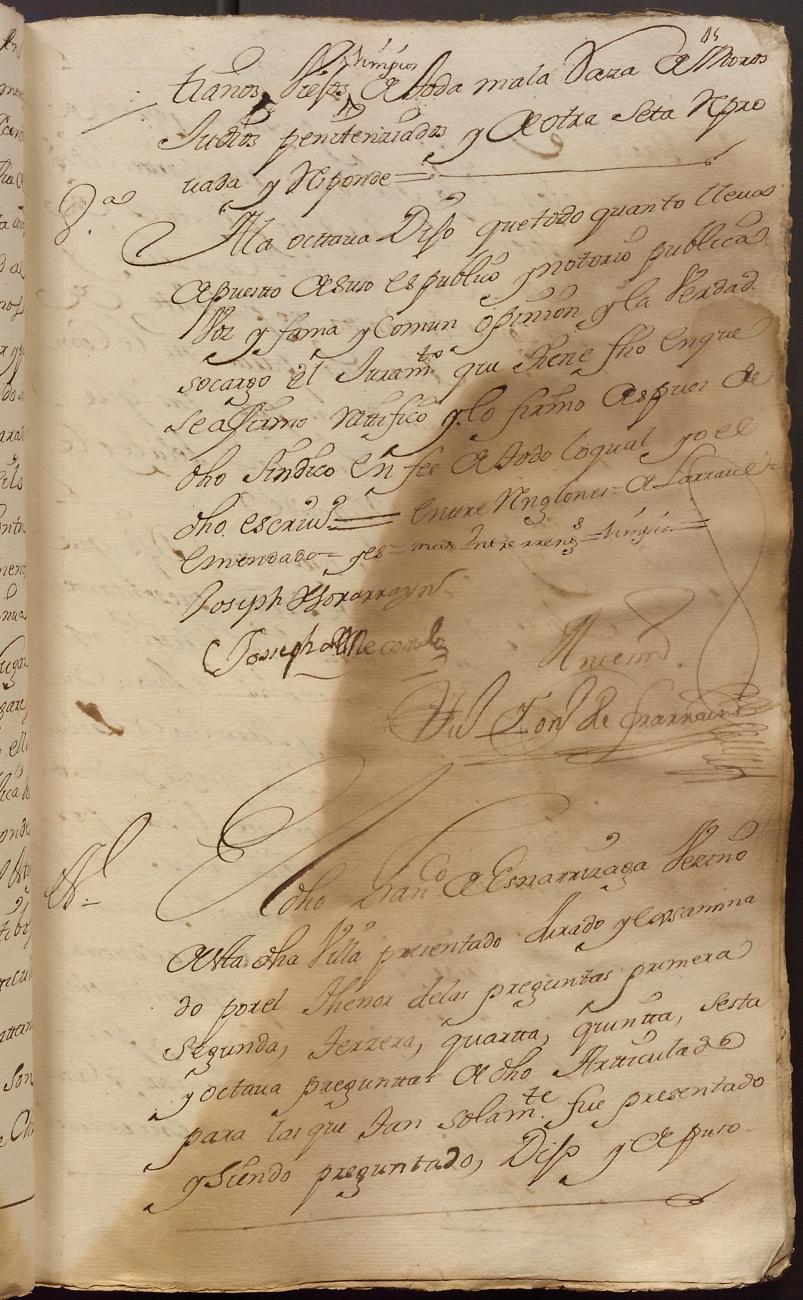 limpios
tianos Viejos de toda mala Raza de Moros
Judios penitenziados y de otra seta Repro
uada y Responde=
8.ª
A la octtaua Dijo que todo quanto lleua
depuesto de suso es publico y notorio publica
Voz y fama y Comun opinion y la Verdad
socargo el Juram.to que tiene fho en que
se afirmo Rattifico y lo firmo despues de
dho sindico en fee de todo lo qual yo el
dho escriu.º = entre Renglones = de Larraue=
Emendado = yes = mas Entre rreng.s = limpios =
Joseph de
Joseph de
Antemi
de Yrarraun
El dho Fran.co de Esnarrizaga Vezino
desta dha Villa presentado Jurado y Exsamina
do por el thenor de las preguntas primera
Segunda, terzera, quartta, quintta, sesta
y octaua pregunttas de dho Artticulado
para las que tan solam.te fue presentado
y siendo preguntado, Dijo y depuso